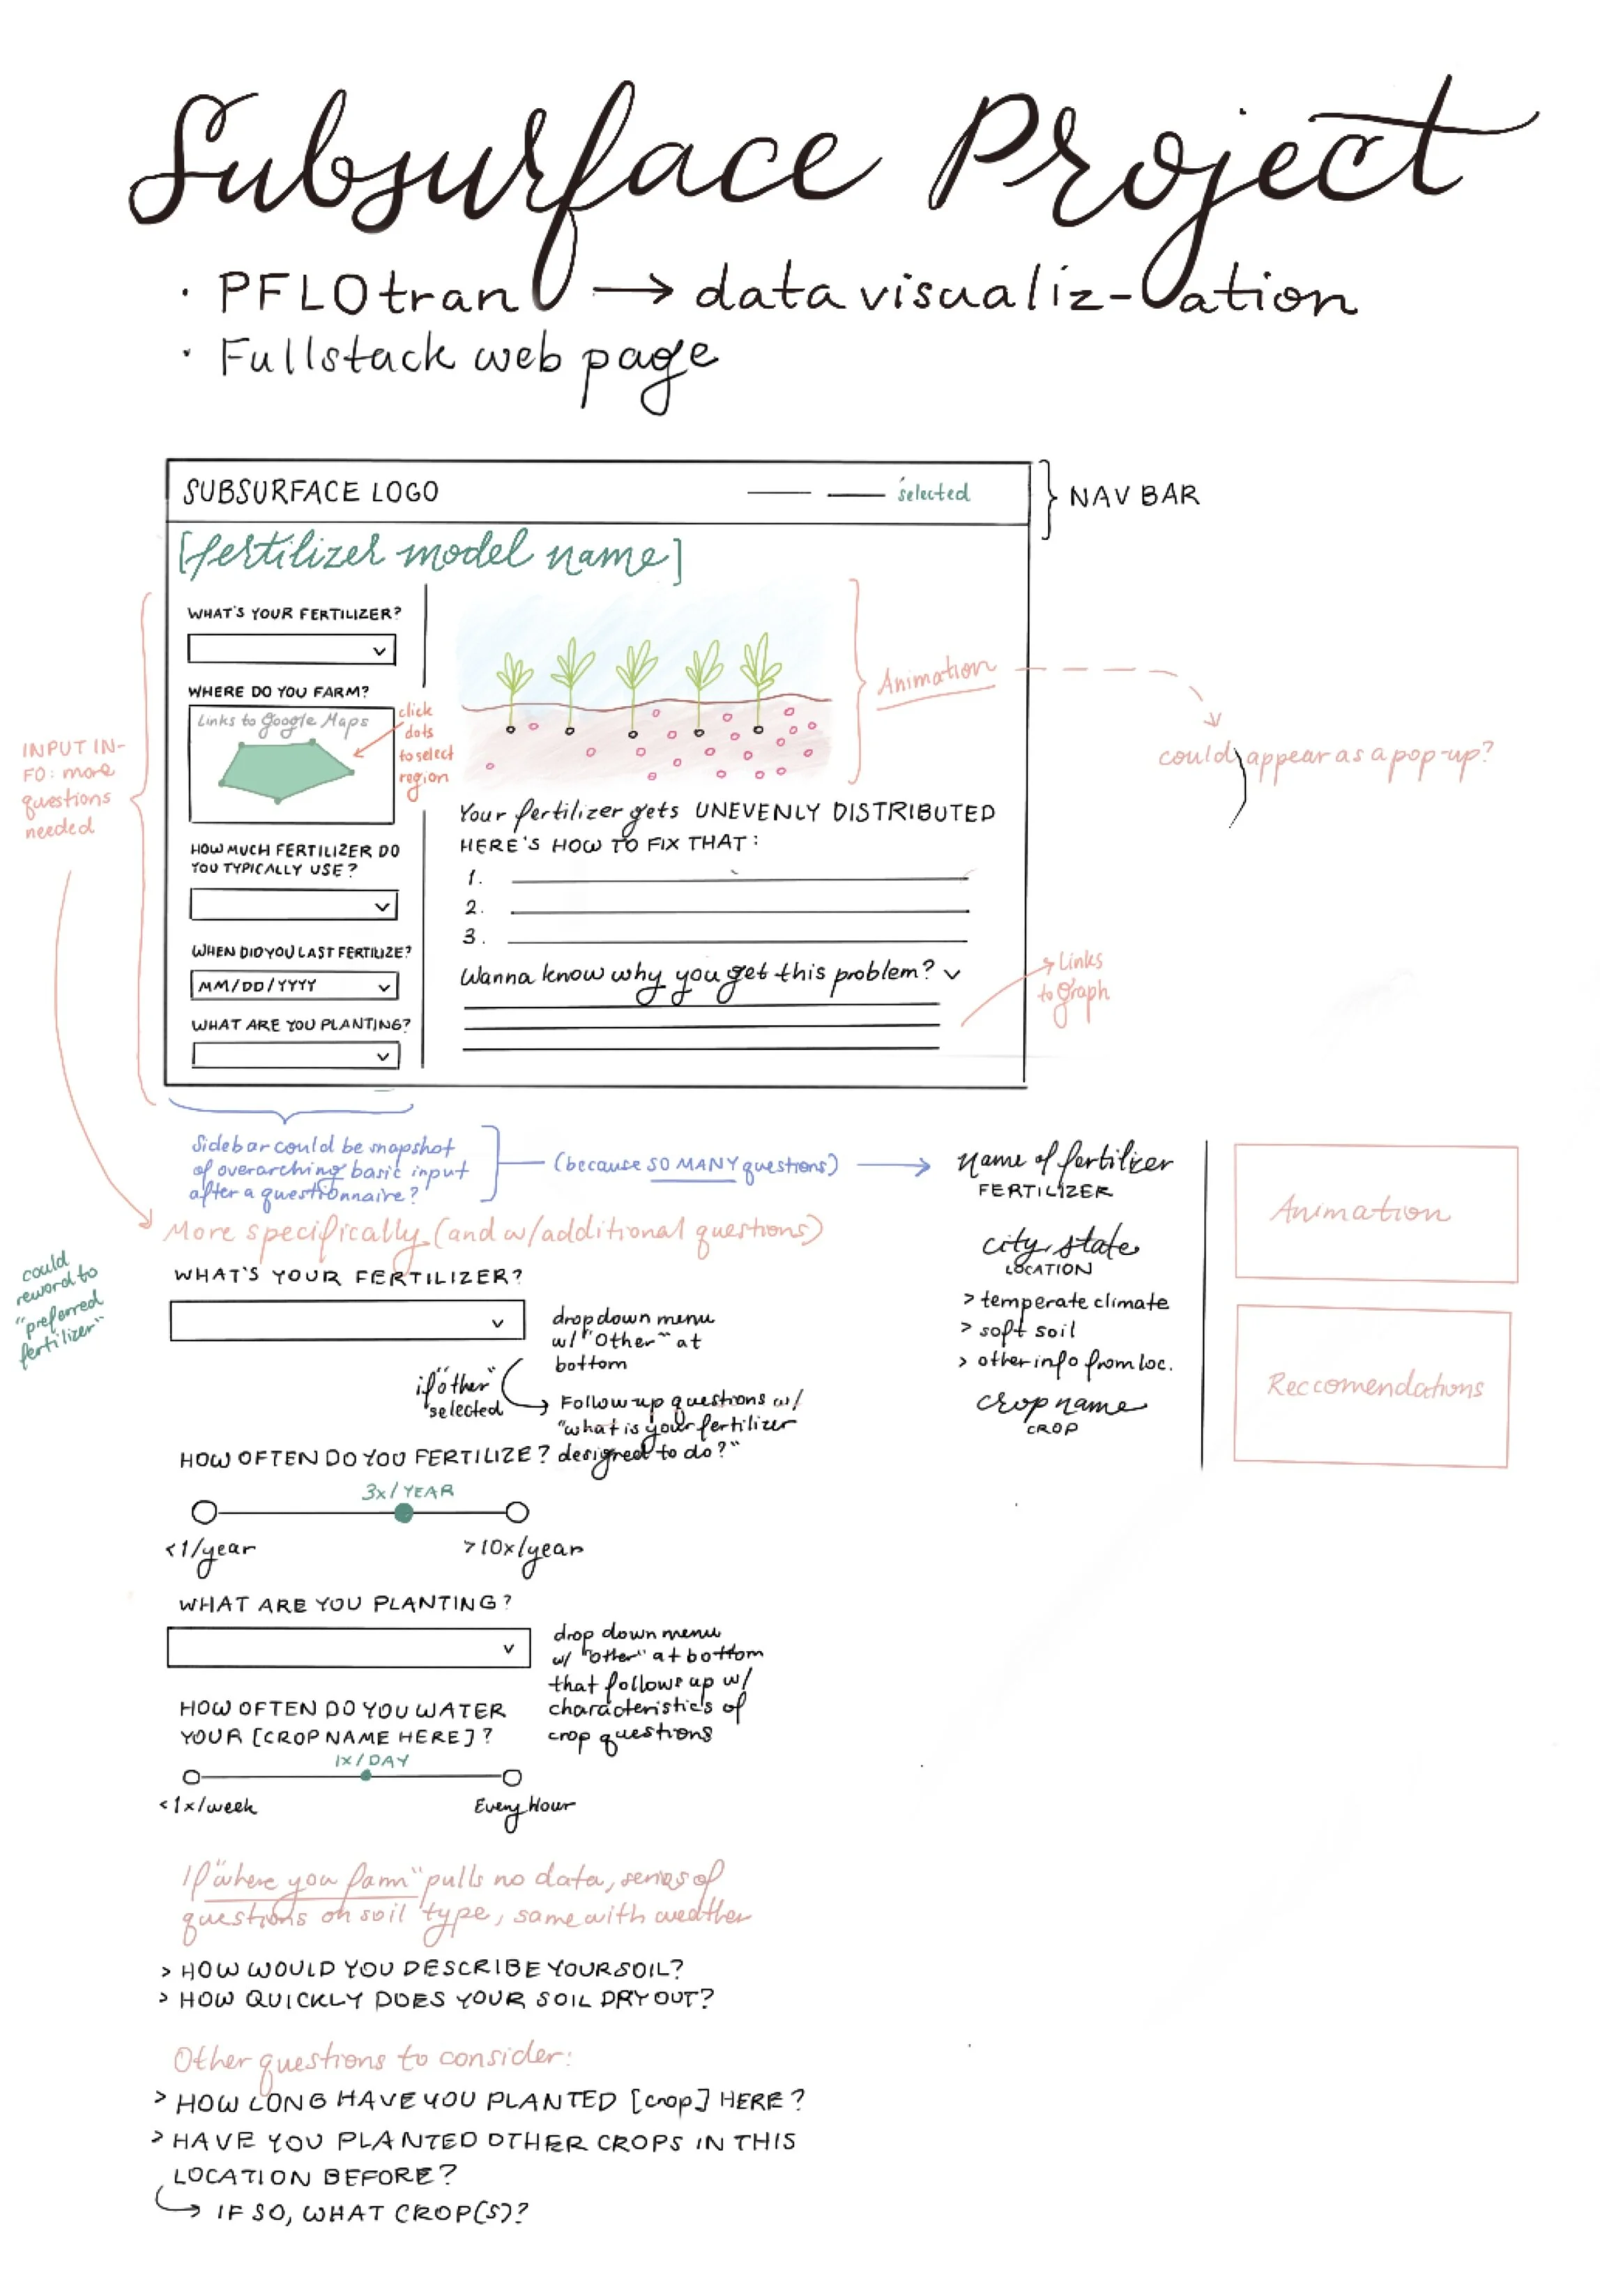 Subsurface Project
· PFLOtran → data visualiz-ation
· Fullstack web page
SUBSURFACE LOGO
selected
NAV BAR
[fertilizer model name]
WHAT'S YOUR FERTILIZER?
WHERE DO YOU FARM?
Links to Google Maps
click
dots
to select
region
INPUT IN-
FO: more
questions
needed
HOW MUCH FERTILIZER DO
YOU TYPICALLY USE?
WHEN DID YOU LAST FERTILIZE?
MM/DD/YYYY
WHAT ARE YOU PLANTING?
Animation
could appear as a pop-up?
Your fertilizer gets UNEVENLY DISTRIBUTED
HERE'S HOW TO FIX THAT:
1.
2.
3.
Wanna know why you get this problem?
Links
to graph
Sidebar could be snapshot
of overarching basic input
after a questionnaire?
(because SO MANY questions)
name of fertilizer
FERTILIZER
city, state
LOCATION
> temperate climate
> soft soil
> other info from loc.
crop name
CROP
Animation
Reccomendations
More specifically (and w/additional questions)
could
reword to
"preferred
fertilizer"
WHAT'S YOUR FERTILIZER?
dropdown menu
w/ "Other" at
bottom
if "other"
selected
Follow-up questions w/
"what is your fertilizer
designed to do?"
HOW OFTEN DO YOU FERTILIZE?
3x/YEAR
<1/year
>10x/year
WHAT ARE YOU PLANTING?
drop down menu
w/ "other" at bottom
that follows up w/
characteristics of
crop questions
HOW OFTEN DO YOU WATER
YOUR [CROP NAME HERE]?
1X/DAY
<1x/week
Every Hour
If "where you farm" pulls no data, series of
questions on soil type, same with weather
> HOW WOULD YOU DESCRIBE YOUR SOIL?
> HOW QUICKLY DOES YOUR SOIL DRY OUT?
Other questions to consider:
> HOW LONG HAVE YOU PLANTED [crop] HERE?
> HAVE YOU PLANTED OTHER CROPS IN THIS
LOCATION BEFORE?
→ IF SO, WHAT CROP(S)?